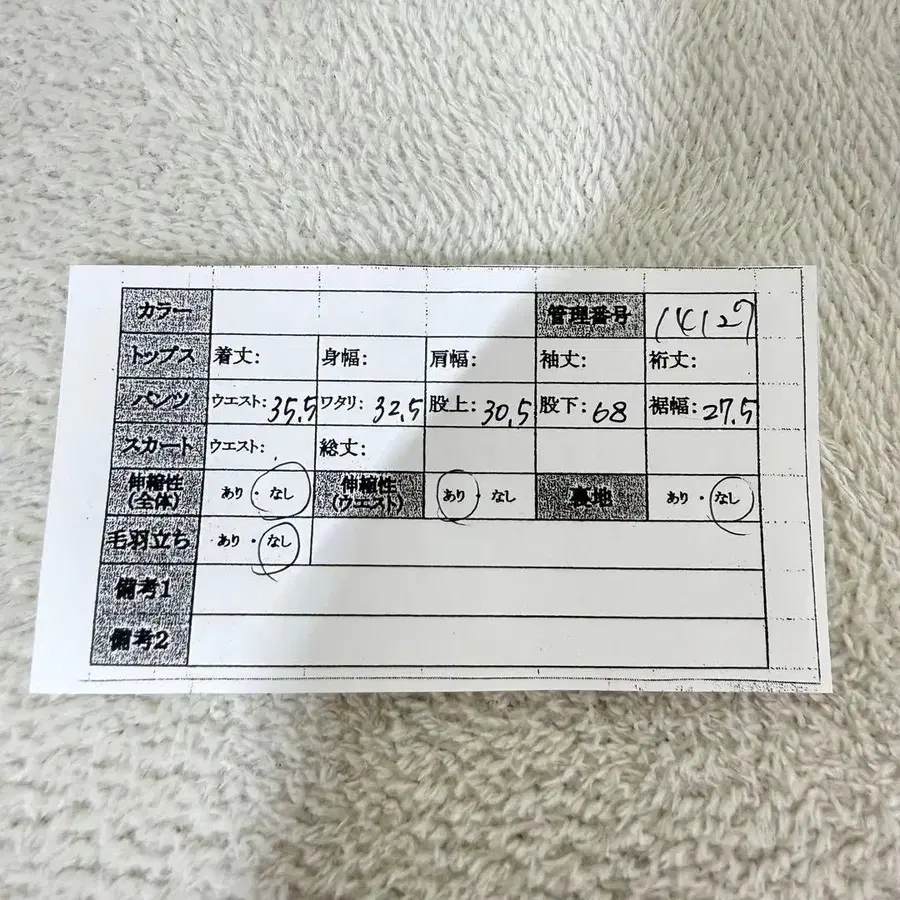 カラー 管理番号
トップス 着丈: 身幅: 肩幅: 袖丈: 裄丈:
パンツ ウエスト: 35.5 ワタリ: 32.5 股上: 30.5 股下: 68 裾幅: 27.5
スカート ウエスト: 総丈:
伸縮性(全体) あり・なし 伸縮性(ウエスト) あり・なし 裏地 あり・なし
毛羽立ち あり・なし
備考1
備考2